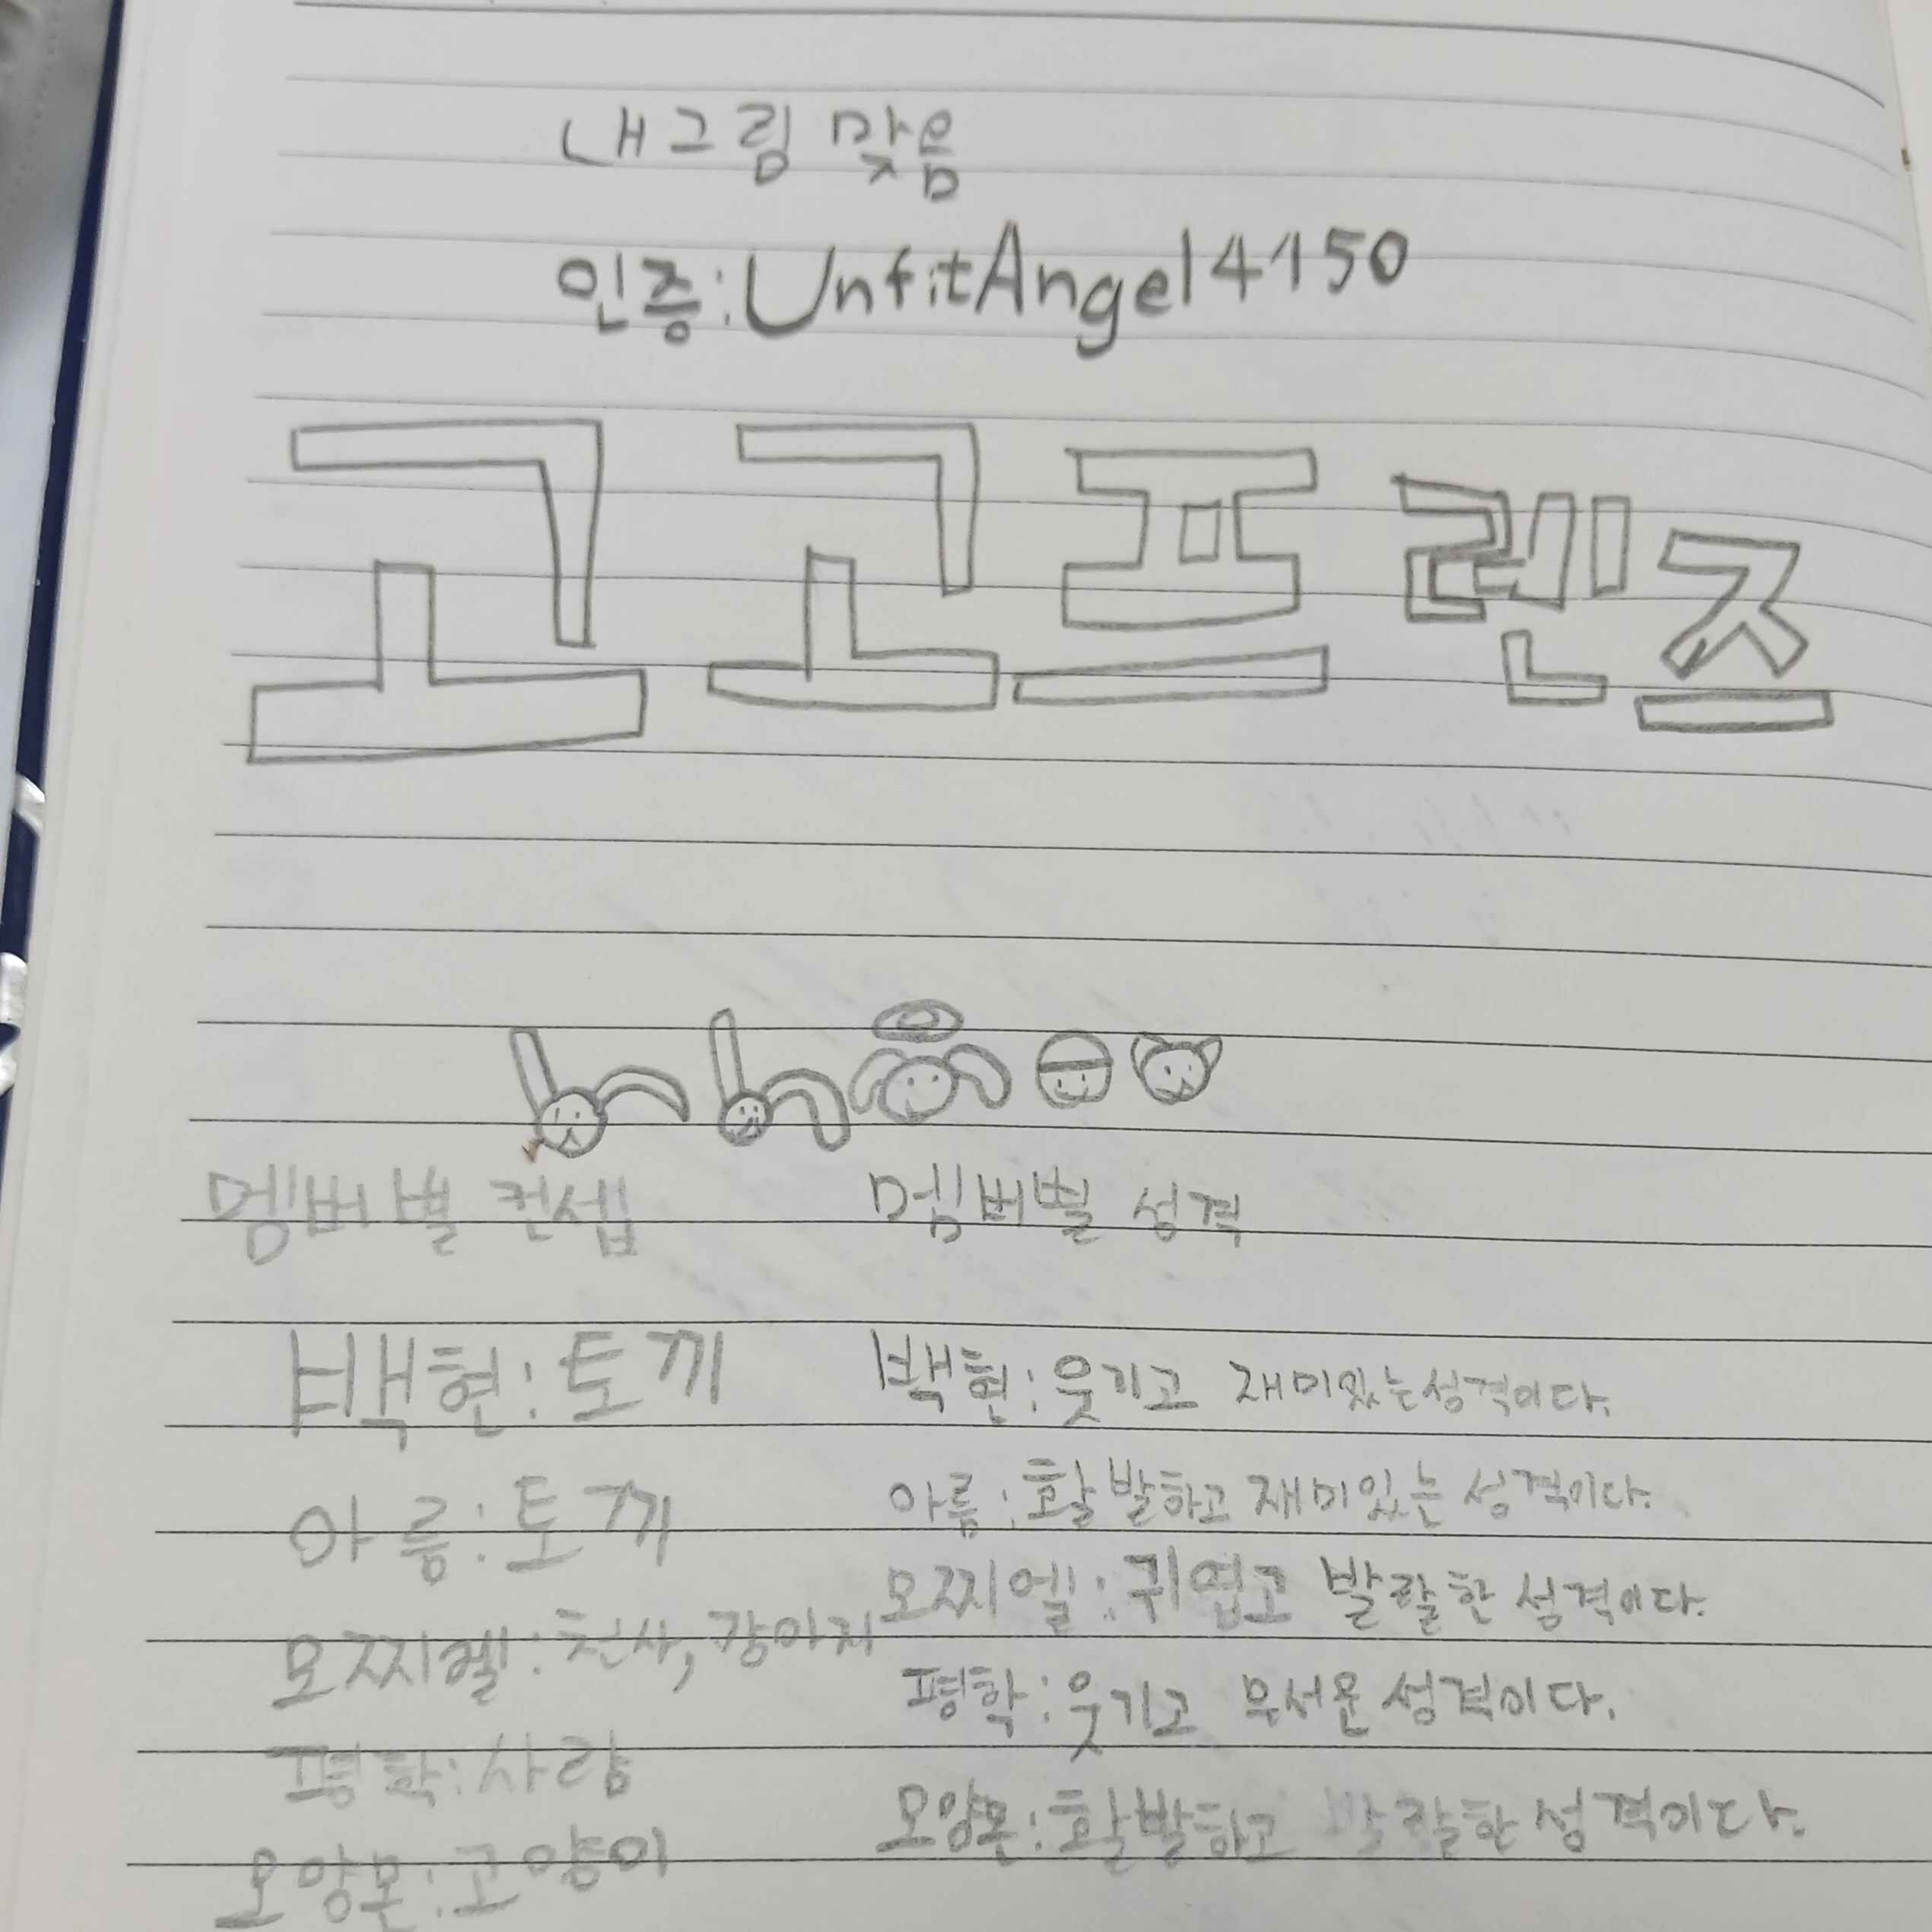 내그림 맞음
인증:UnfitAngel4150
고고프렌즈
멤버별 컨셉
멤버별 성격
백현:토끼
백현:웃기고 재미있는성격이다.
아름:토끼
아름:활발하고 재미있는 성격이다.
모찌엘:천사,강아지
모찌엘:귀엽고 발랄한 성격이다.
평학:사람
평학:웃기고 무서운 성격이다.
오양몬:고양이
오양몬:활발하고 발랄한 성격이다.